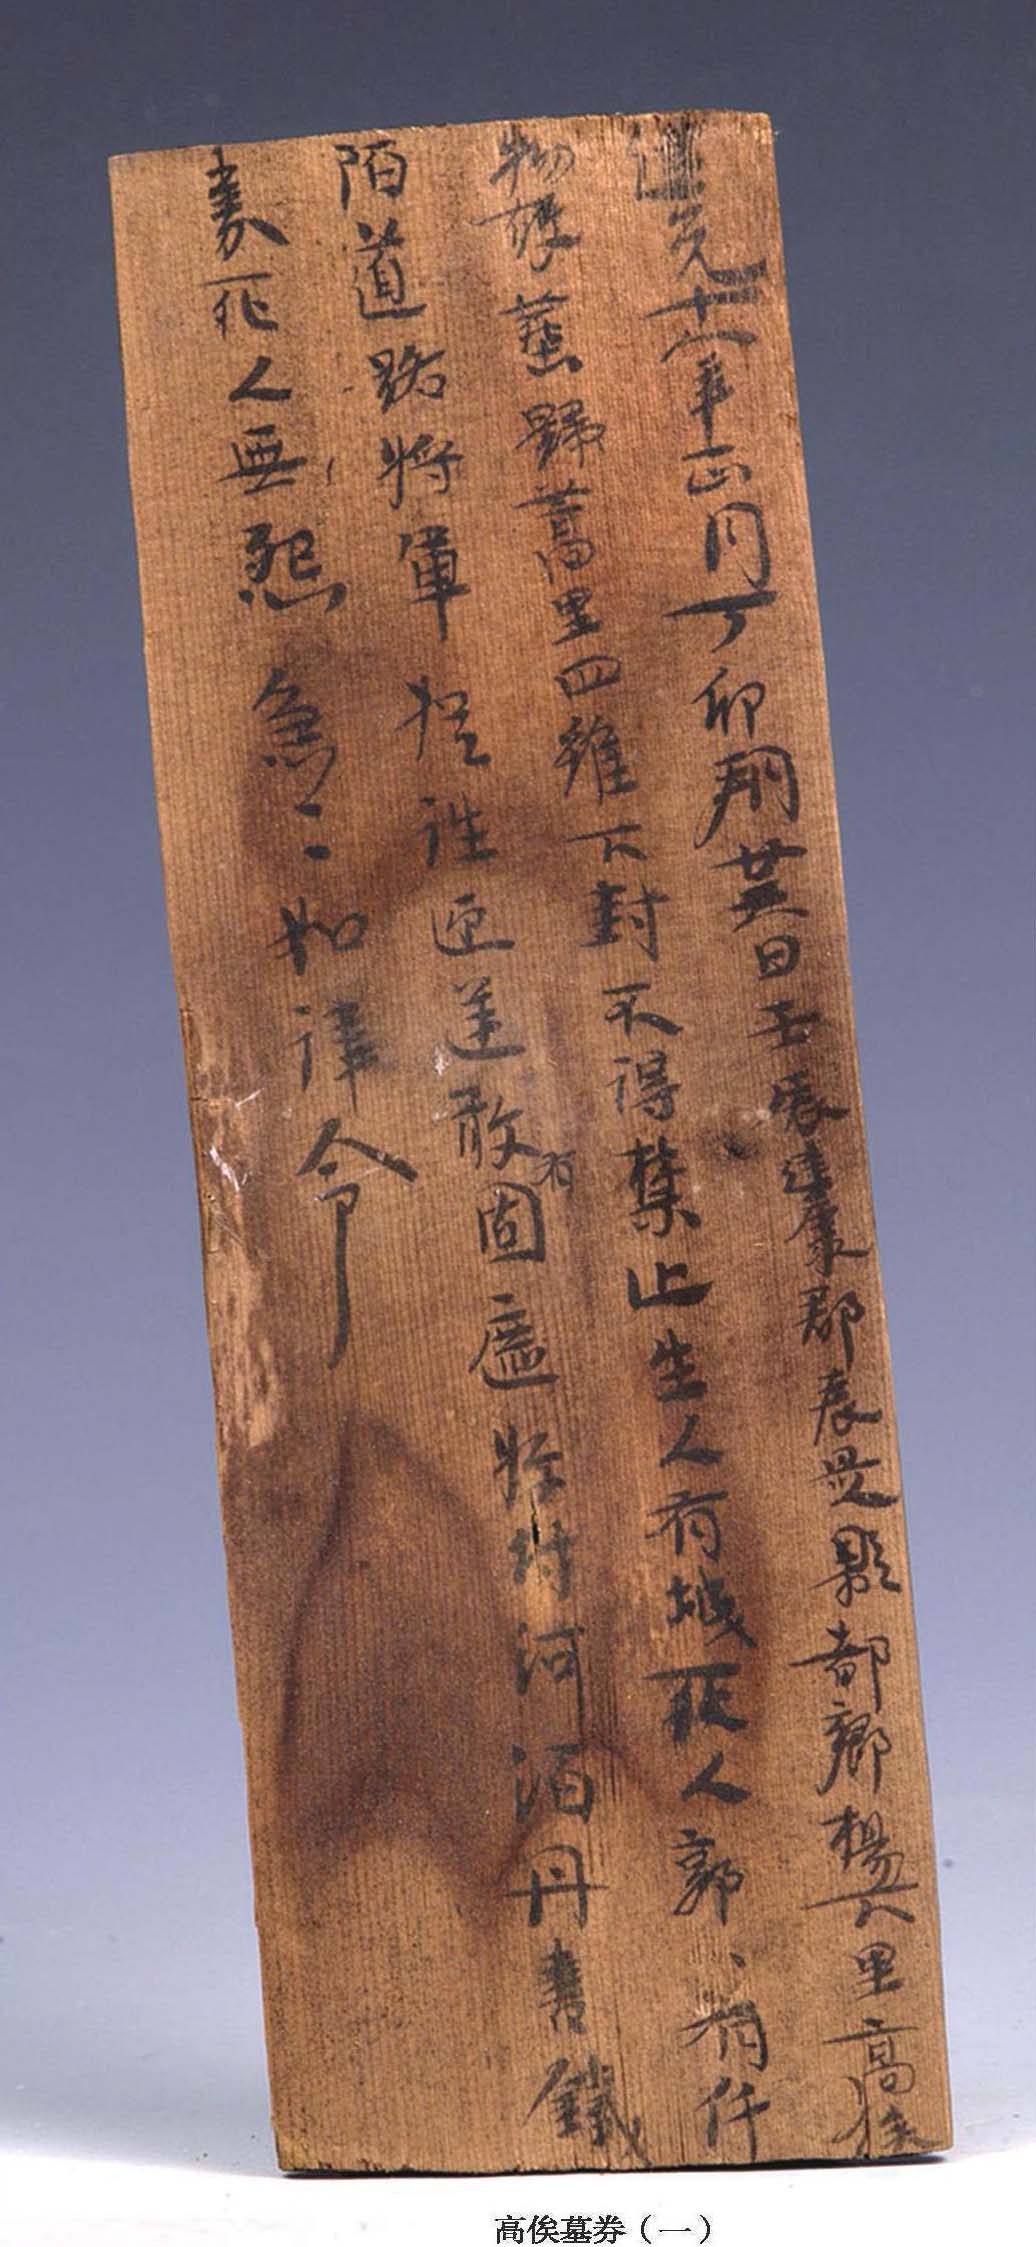 建元十八年正月丁卯朔廿六日壬辰建康郡表是縣都鄉楊下里高俟
物故葬歸蒿里四維下封不得禁止生人有城死人郭〻有仟
陌道路將軍從往迊送敢有固遮將付河伯丹書鐵
券死人無怨急〻如律令
高俟墓券（一）